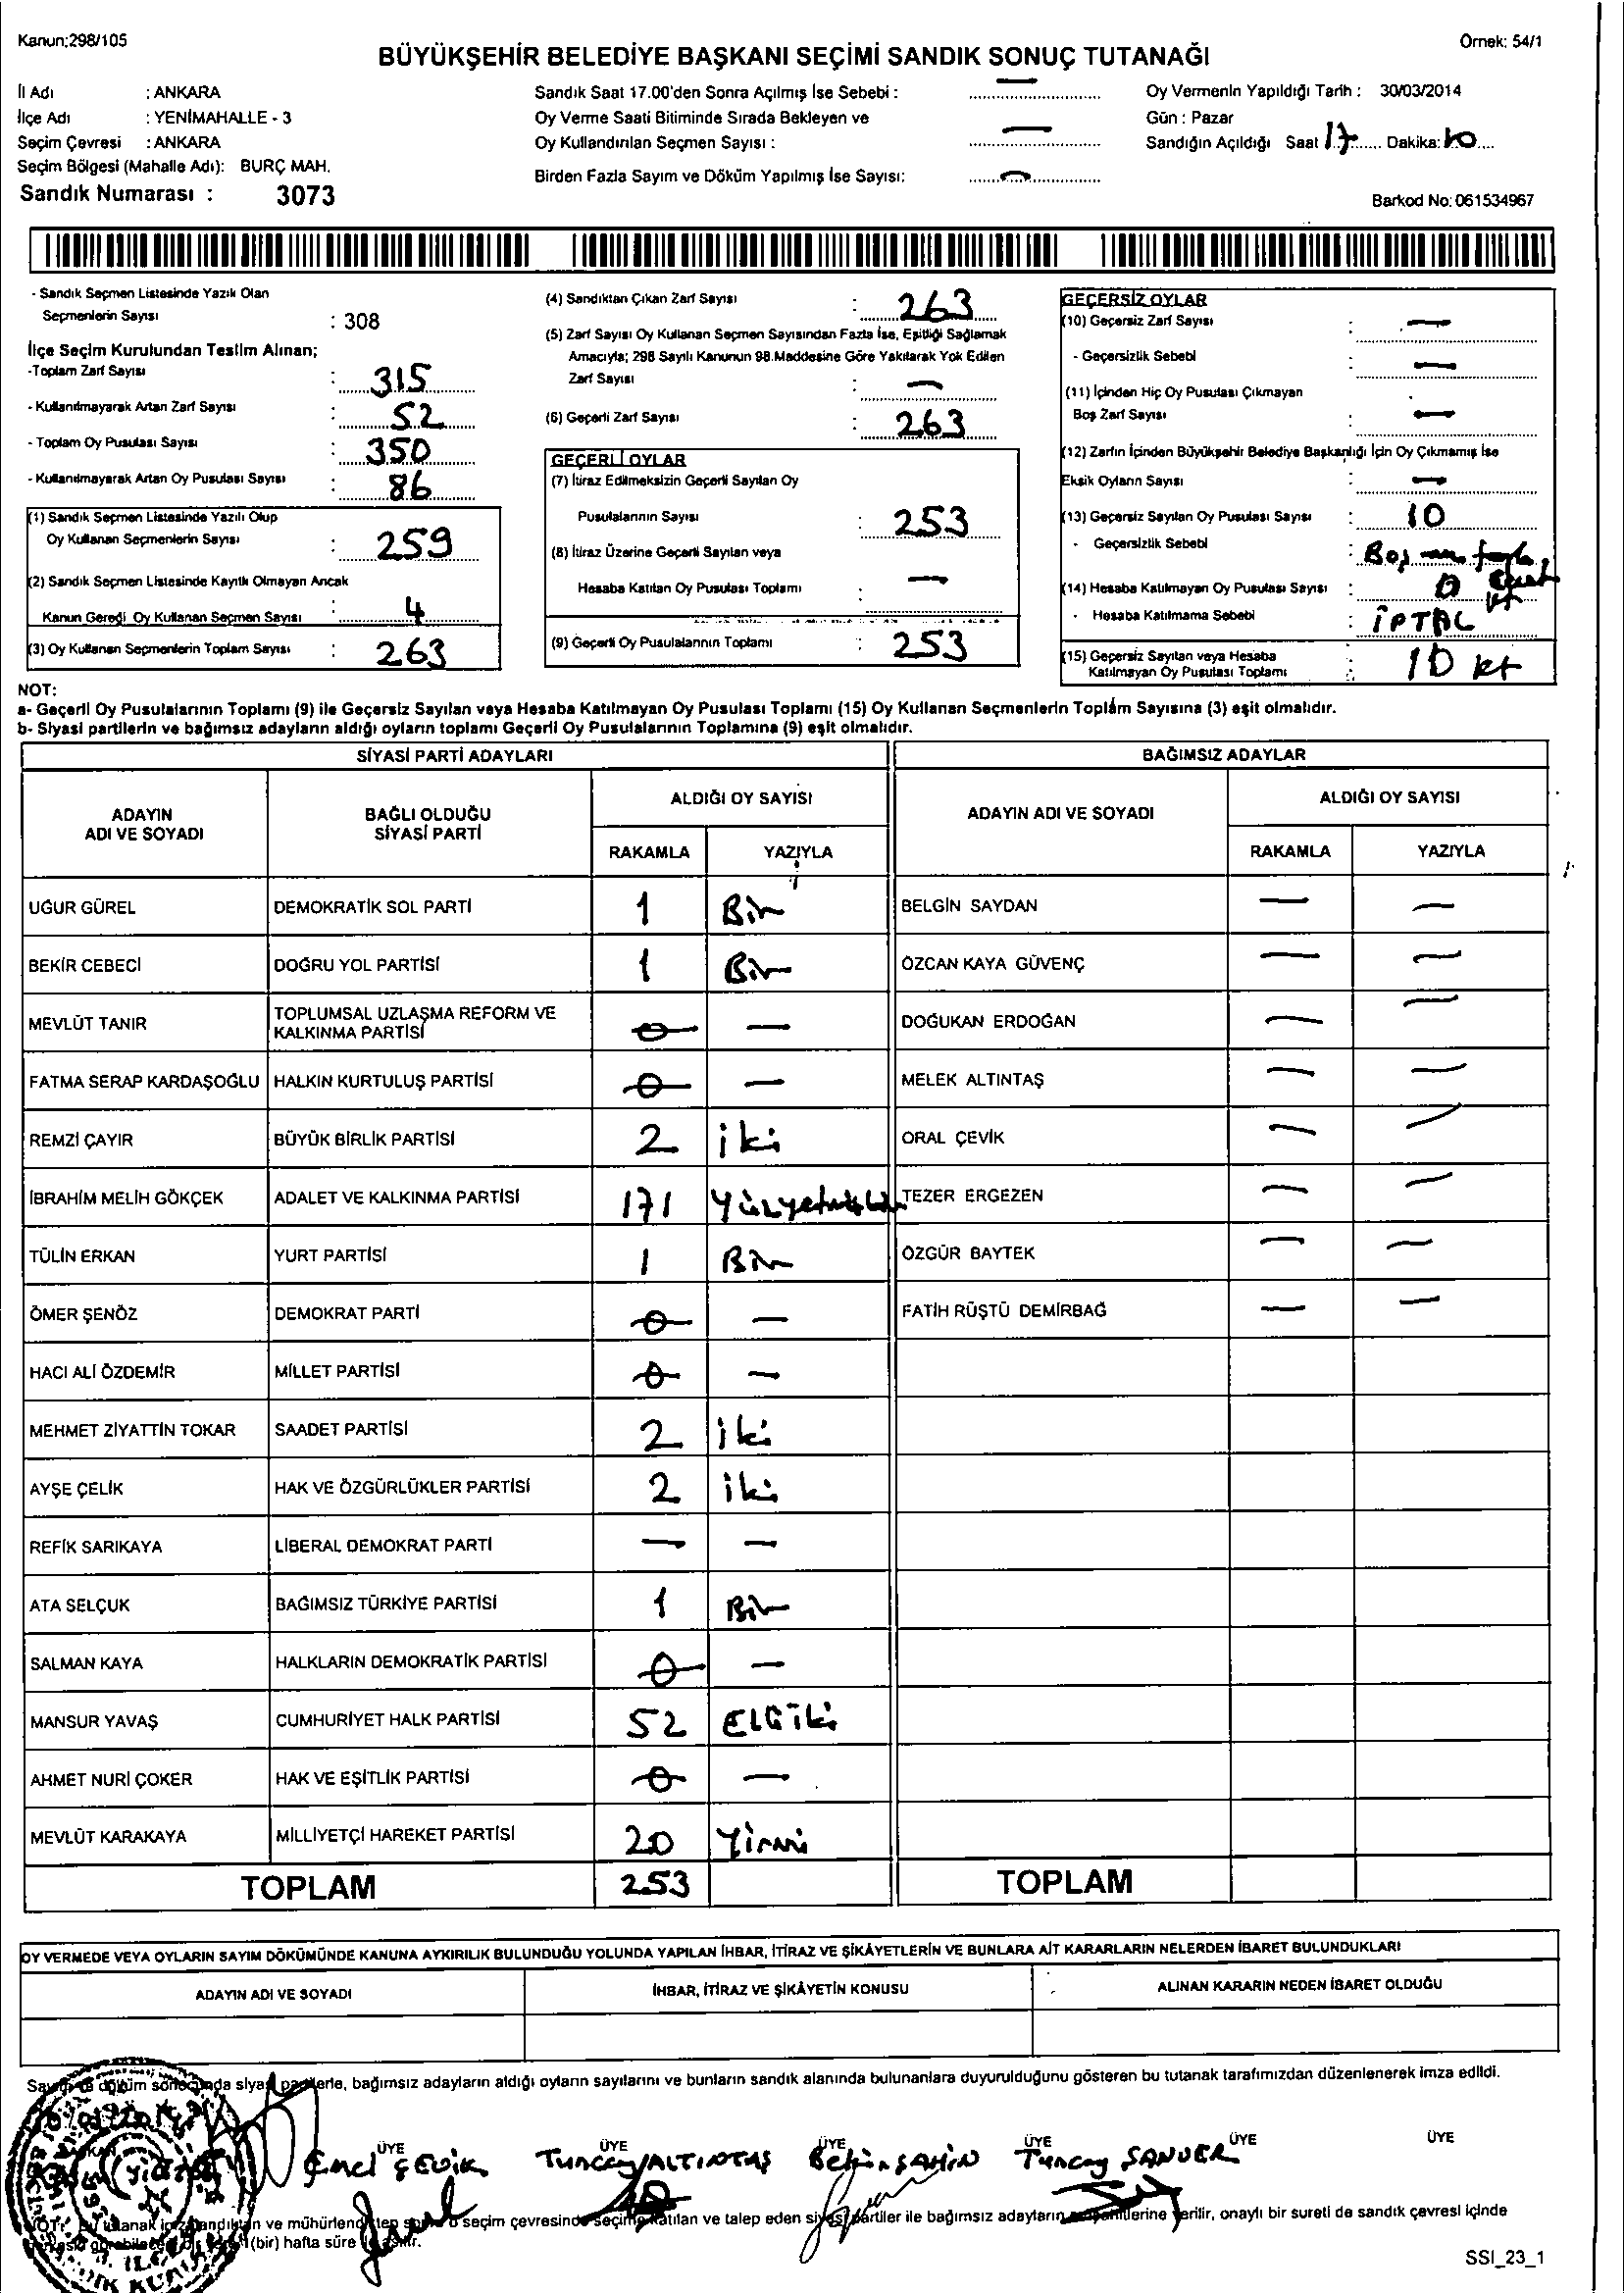 Kanun;298/105
Örnek: 54/1
BÜYÜKŞEHİR BELEDİYE BAŞKANI SEÇİMİ SANDIK SONUÇ TUTANAĞI
İl Adı : ANKARA
İlçe Adı : YENİMAHALLE - 3
Seçim Çevresi : ANKARA
Seçim Bölgesi (Mahalle Adı): BURÇ MAH.
Sandık Numarası : 3073
Sandık Saat 17.00'den Sonra Açılmış İse Sebebi : —
Oy Verme Saati Bitiminde Sırada Bekleyen ve
Oy Kullandırılan Seçmen Sayısı : —
Birden Fazla Sayım ve Döküm Yapılmış İse Sayısı: —
Oy Vermenin Yapıldığı Tarih : 30/03/2014
Gün : Pazar
Sandığın Açıldığı Saat 17 Dakika: 10
Barkod No: 061534967
- Sandık Seçmen Listesinde Yazılı Olan
Seçmenlerin Sayısı : 308
İlçe Seçim Kurulundan Teslim Alınan;
-Toplam Zarf Sayısı : 315
- Kullanılmayarak Artan Zarf Sayısı : 52
- Toplam Oy Pusulası Sayısı : 350
- Kullanılmayarak Artan Oy Pusulası Sayısı : 86
(1) Sandık Seçmen Listesinde Yazılı Olup
Oy Kullanan Seçmenlerin Sayısı : 259
(2) Sandık Seçmen Listesinde Kayıtlı Olmayan Ancak
Kanun Gereği Oy Kullanan Seçmen Sayısı : 4
(3) Oy Kullanan Seçmenlerin Toplam Sayısı : 263
(4) Sandıktan Çıkan Zarf Sayısı : 263
(5) Zarf Sayısı Oy Kullanan Seçmen Sayısından Fazla İse, Eşitliği Sağlamak
Amacıyla; 298 Sayılı Kanunun 98.Maddesine Göre Yakılarak Yok Edilen
Zarf Sayısı : —
(6) Geçerli Zarf Sayısı : 263
GEÇERLİ OYLAR
(7) İtiraz Edilmeksizin Geçerli Sayılan Oy
Pusulalarının Sayısı : 253
(8) İtiraz Üzerine Geçerli Sayılan veya
Hesaba Katılan Oy Pusulası Toplamı : —
(9) Geçerli Oy Pusulalarının Toplamı : 253
GEÇERSİZ OYLAR
(10) Geçersiz Zarf Sayısı : —
- Geçersizlik Sebebi : —
(11) İçinden Hiç Oy Pusulası Çıkmayan
Boş Zarf Sayısı : —
(12) Zarfın İçinden Büyükşehir Belediye Başkanlığı İçin Oy Çıkmamış İse
Eksik Oyların Sayısı : —
(13) Geçersiz Sayılan Oy Pusulası Sayısı : 10
- Geçersizlik Sebebi : Boş
(14) Hesaba Katılmayan Oy Pusulası Sayısı : 0
- Hesaba Katılmama Sebebi : İPTAL
(15) Geçersiz Sayılan veya Hesaba
Katılmayan Oy Pusulası Toplamı : 10
NOT:
a- Geçerli Oy Pusulalarının Toplamı (9) ile Geçersiz Sayılan veya Hesaba Katılmayan Oy Pusulası Toplamı (15) Oy Kullanan Seçmenlerin Toplam Sayısına (3) eşit olmalıdır.
b- Siyasi partilerin ve bağımsız adayların aldığı oyların toplamı Geçerli Oy Pusulalarının Toplamına (9) eşit olmalıdır.
SİYASİ PARTİ ADAYLARI
BAĞIMSIZ ADAYLAR
ADAYIN ADI VE SOYADI
BAĞLI OLDUĞU SİYASİ PARTİ
ALDIĞI OY SAYISI
RAKAMLA YAZIYLA
ADAYIN ADI VE SOYADI
ALDIĞI OY SAYISI
RAKAMLA YAZIYLA
UĞUR GÜREL DEMOKRATİK SOL PARTİ 1 Bir BELGİN SAYDAN — —
BEKİR CEBECİ DOĞRU YOL PARTİSİ 1 Bir ÖZCAN KAYA GÜVENÇ — —
MEVLÜT TANIR TOPLUMSAL UZLAŞMA REFORM VE KALKINMA PARTİSİ 0 — DOĞUKAN ERDOĞAN — —
FATMA SERAP KARDAŞOĞLU HALKIN KURTULUŞ PARTİSİ 0 — MELEK ALTINTAŞ — —
REMZİ ÇAYIR BÜYÜK BİRLİK PARTİSİ 2 iki ORAL ÇEVİK — —
İBRAHİM MELİH GÖKÇEK ADALET VE KALKINMA PARTİSİ 171 Yüzyetmişbir TEZER ERGEZEN — —
TÜLİN ERKAN YURT PARTİSİ 1 Bir ÖZGÜR BAYTEK — —
ÖMER ŞENÖZ DEMOKRAT PARTİ 0 — FATİH RÜŞTÜ DEMİRBAĞ — —
HACI ALİ ÖZDEMİR MİLLET PARTİSİ 0 —
MEHMET ZİYATTİN TOKAR SAADET PARTİSİ 2 iki
AYŞE ÇELİK HAK VE ÖZGÜRLÜKLER PARTİSİ 2 iki
REFİK SARIKAYA LİBERAL DEMOKRAT PARTİ — —
ATA SELÇUK BAĞIMSIZ TÜRKİYE PARTİSİ 1 Bir
SALMAN KAYA HALKLARIN DEMOKRATİK PARTİSİ 0 —
MANSUR YAVAŞ CUMHURİYET HALK PARTİSİ 52 ELLİİki
AHMET NURİ ÇOKER HAK VE EŞİTLİK PARTİSİ 0 —
MEVLÜT KARAKAYA MİLLİYETÇİ HAREKET PARTİSİ 20 Yirmi
TOPLAM 253 TOPLAM
OY VERMEDE VEYA OYLARIN SAYIM DÖKÜMÜNDE KANUNA AYKIRILIK BULUNDUĞU YOLUNDA YAPILAN İHBAR, İTİRAZ VE ŞİKÂYETLERİN VE BUNLARA AİT KARARLARIN NELERDEN İBARET BULUNDUKLARI
ADAYIN ADI VE SOYADI İHBAR, İTİRAZ VE ŞİKÂYETİN KONUSU ALINAN KARARIN NEDEN İBARET OLDUĞU
Sayım ve döküm sonucunda siyasi partilerle, bağımsız adayların aldığı oyların sayılarını ve bunların sandık alanında bulunanlara duyurulduğunu gösteren bu tutanak tarafımızdan düzenlenerek imza edildi.
ÜYE ÜYE ÜYE ÜYE ÜYE ÜYE
Emel ÇEVİK Tuncay ALTINTAŞ ŞAHİN Tuncay SANVER
NOT: Bu tutanak imzalandıktan ve mühürlendikten sonra o seçim çevresinde seçime katılan ve talep eden siyasi partiler ile bağımsız adayların müşahitlerine verilir, onaylı bir sureti de sandık çevresi içinde
(bir) hafta süre ile asılır.
SSI_23_1